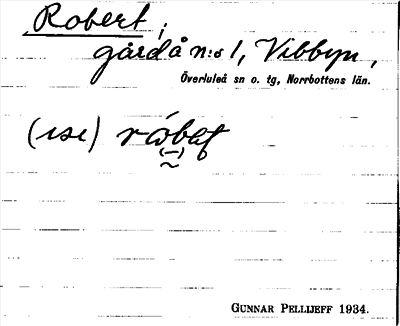 Robert;
gård å n:o 1, Vibbyn,
Överluleå sn o. tg, Norrbottens län.
(ise) róbet
(–)
~
GUNNAR PELLIJEFF 1934.